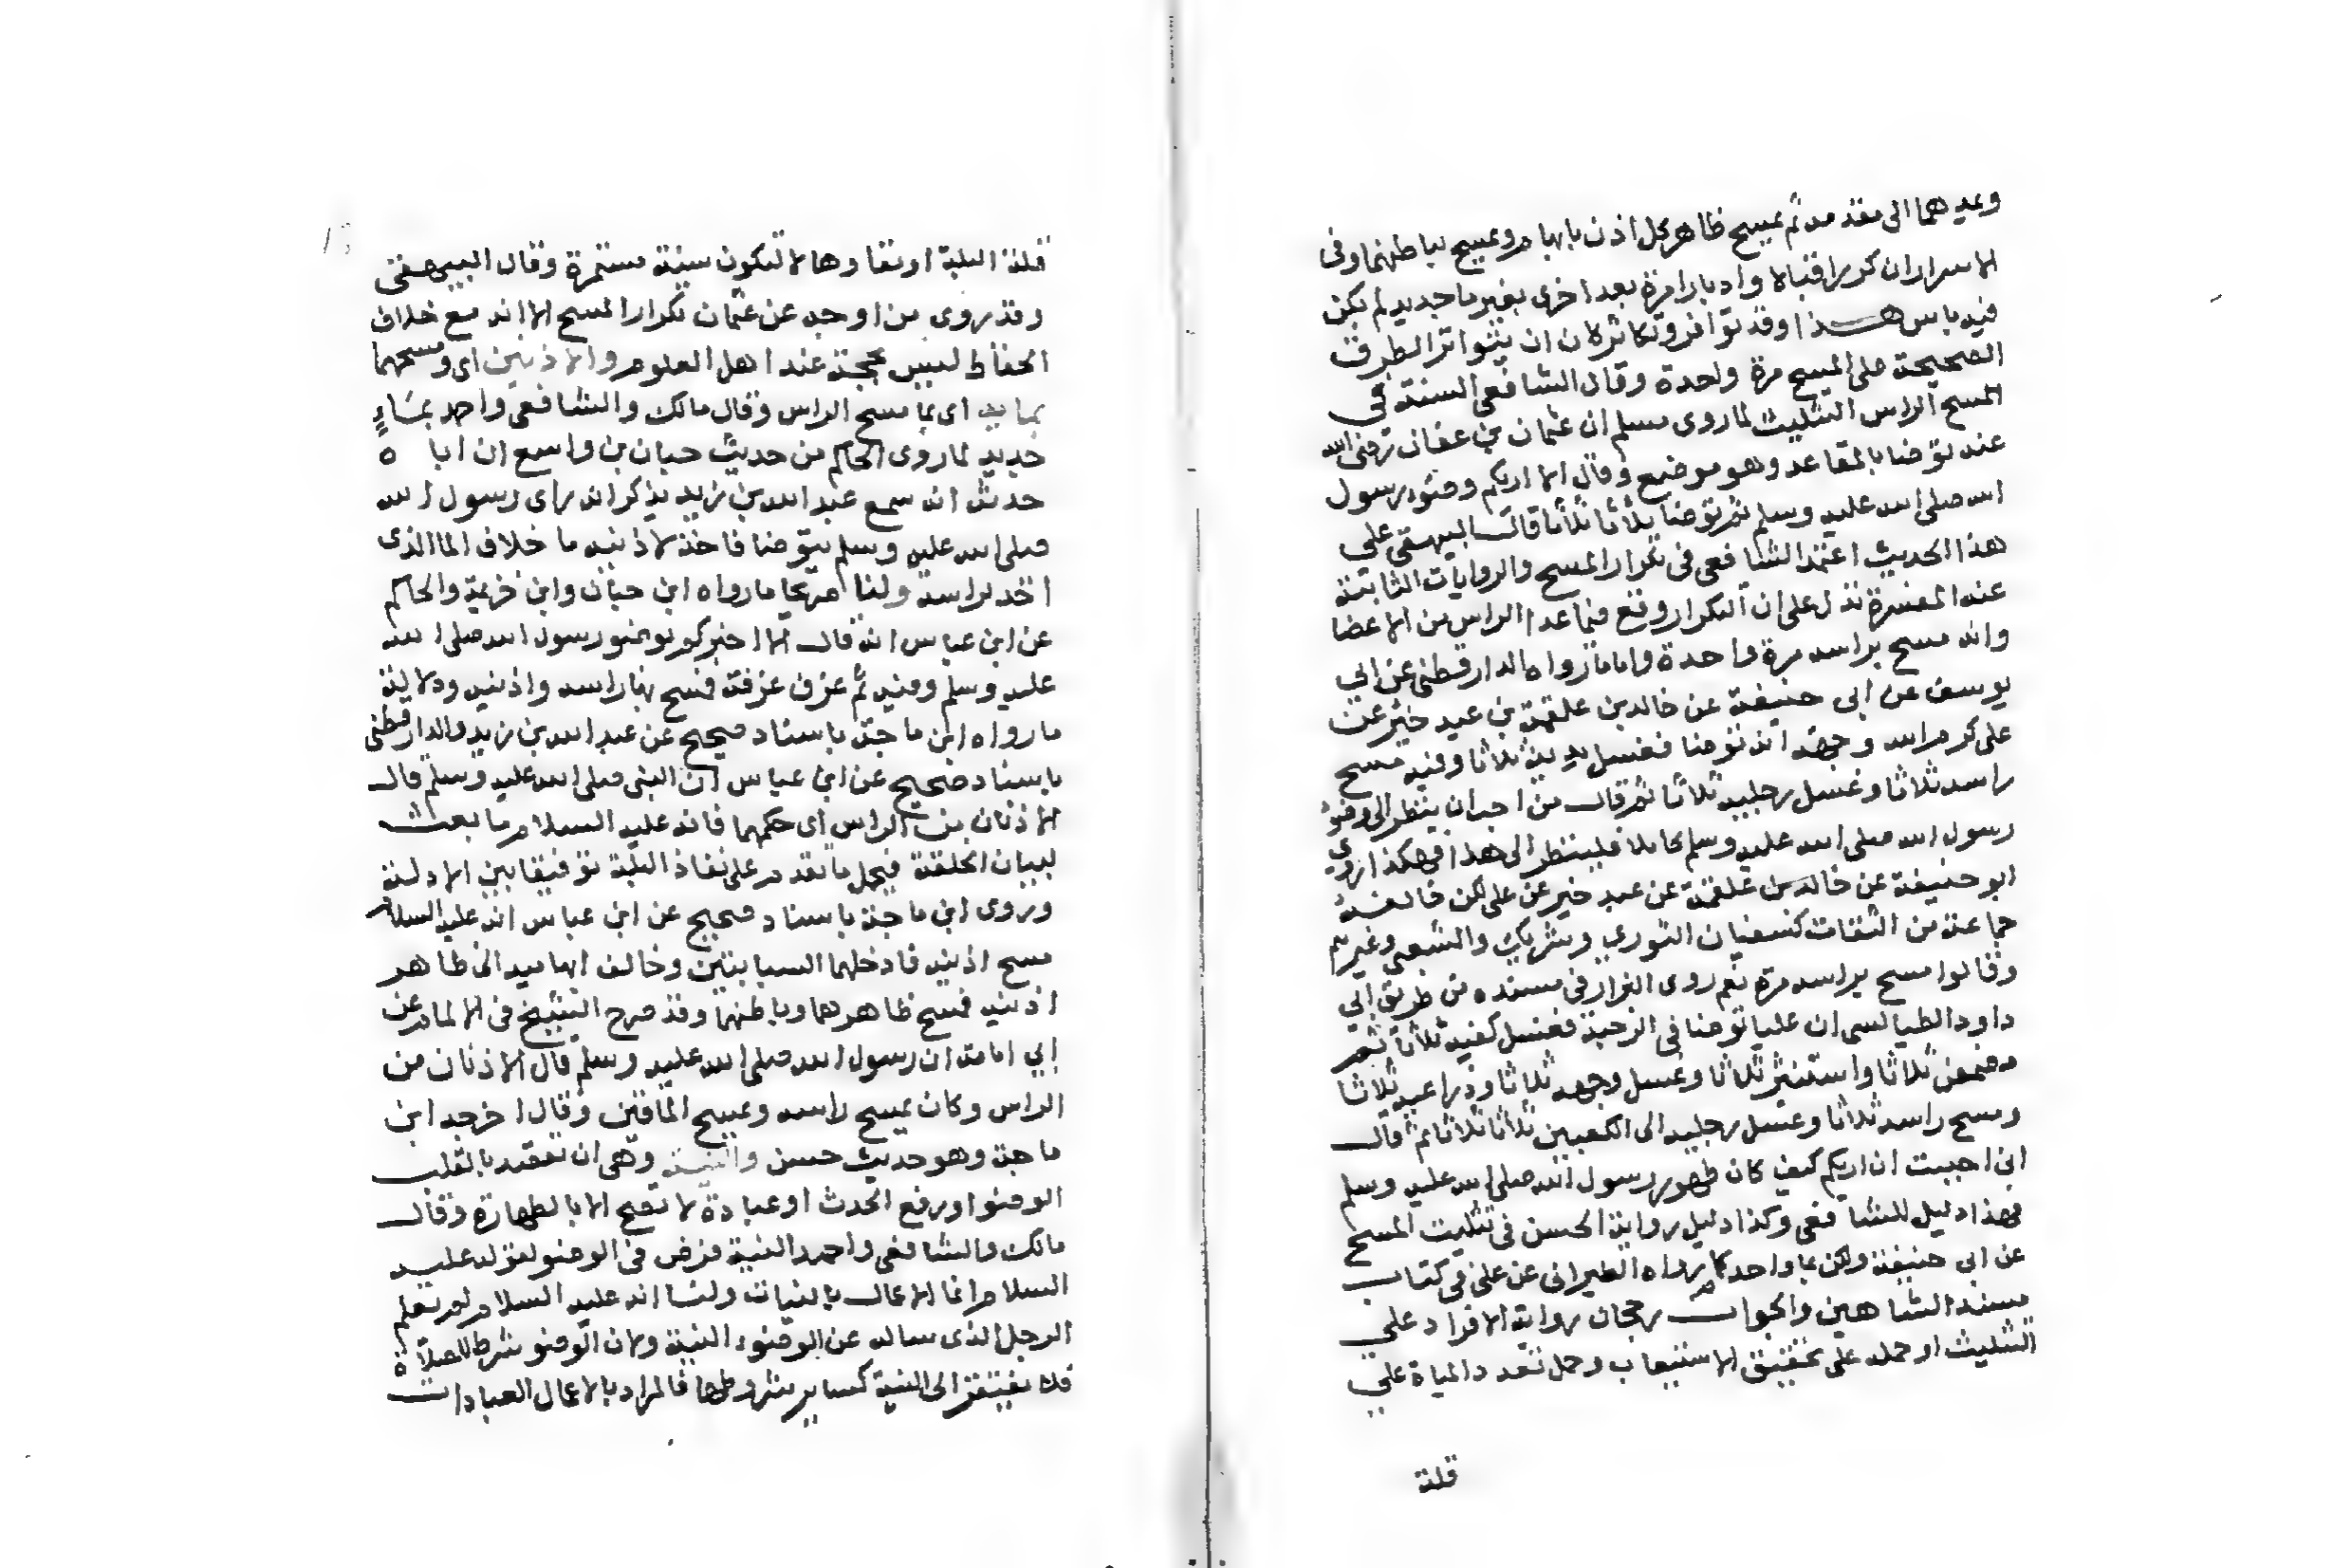 ويمدهما الى مقدمه ثم يمسح ظاهر كل اذن بابهام ويمسح بباطنهما وفى
الاسرار ان كرر اقبالا وادبارا مرة بعد اخرى بغير ما جديد لم يكن
فيه باس هذا وقد توافر وتكاثر لان ان يتواتر الطرق
الصحيحة على المسح مرة واحدة وقال الشافعى السنة فى
المسح الراس التثليث لما روى مسلم ان عثمان بن عفان رضى الله
عنه توضا بالمقاعد وهو موضع وقال الا اريكم وضوء رسول
الله صلى الله عليه وسلم ثم توضا ثلاثا ثلاثا قال البيهقى على
هذا الحديث اعتمد الشافعى فى تكرار المسح والروايات الثابتة
عند المفسرة تدل على ان التكرار وقع فيما عدا الراس من الاعضا
وانه مسح براسه مرة واحدة واما ما رواه الدارقطنى عن ابى
يوسف عن ابى حنيفة عن خالد بن علقمة بن عبد خير عن
على كرم الله وجهه انه توضا فغسل يديه ثلاثا وفيه مسح
راسه ثلاثا وغسل رجليه ثلاثا ثم قال من احب ان ينظر الى وضوء
رسول الله صلى الله عليه وسلم كاملا فلينظر الى هذا فهكذا روى
ابو حنيفة عن خالد بن علقمة عن عبد خير عن على لكن خالفه
جماعة من الثقات كسفيان الثورى وشريك والشعبى وغيرهم
وقالوا مسح براسه مرة نعم روى البزار فى مسنده من طريق ابى
داود الطيالسى ان عليا توضا فى الرحبة فغسل كفيه ثلاثا ثم
مضمض ثلاثا واستنثر ثلاثا وغسل وجهه ثلاثا وذراعيه ثلاثا
ومسح راسه ثلاثا وغسل رجليه الى الكعبين ثلاثا ثلاثا ثم قال
انى احببت ان اريكم كيف كان طهور رسول الله صلى الله عليه وسلم
فهذا دليل للشافعى وكذا دليل رواية الحسن فى تثليث المسح
عن ابى حنيفة ولكن بما واحد كما رواه الطبرانى عن على فى كتاب
مسند الشاهين والجواب رجحان رواية الافراد على
التثليث او حمله على تحقيق الاستيعاب وحمل تعدد المياة على
قلة
قلة البلة او نفادها لا لتكون سنة مستمرة وقال البيهقى
وقد روى من اوجه عن عثمان تكرار المسح الا انه مع خلاف
الحفاظ ليس بحجة عند اهل العلوم والاذنين اى ومسحهما
بمايه اى بما مسح الراس وقال مالك والشافعى واحمد بماء
جديد لما روى الحاكم من حديث حبان بن واسع ان اباه
حدثه انه سمع عبد الله بن زيد يذكر انه راى رسول الله
صلى الله عليه وسلم يتوضا فاخذ لاذنيه ما خلاف الما الذى
اخذ براسه ولنا صريحا ما رواه ابن حبان وابن خزيمة والحاكم
عن ابن عباس انه قال الا اخبركم بوضوء رسول الله صلى الله
عليه وسلم وفيه ثم غرف غرفة فمسح بها راسه واذنيه ودلالة
ما رواه ابن ماجة باسناد صحيح عن عبد الله بن زيد والدارقطنى
باسناد صحيح عن ابن عباس ان النبى صلى الله عليه وسلم قال
الاذنان من الراس اى حكمهما فانه عليه السلام ما بعث
لبيان الخلقة فيحمل ما تقدم على نفاذ البلة توفيقا بين الادلة
وروى ابن ماجة باسناد صحيح عن ابن عباس انه عليه السلام
مسح اذنيه فادخلهما السبابتين وخالف ابهاميه الى ظاهر
اذنيه فمسح ظاهرهما وباطنهما وقد صرح الشيخ فى الالمام عن
ابى امامة ان رسول الله صلى الله عليه وسلم قال الاذنان من
الراس وكان يمسح راسه ويمسح الماقين وقال اخرجه ابن
ماجة وهو حديث حسن والنية وهى ان تقصد بالقلب
الوضوا ورفع الحدث او عبادة لا تصح الا بالطهارة وقال
مالك والشافعى واحمد النية فرض فى الوضو لقوله عليه
السلام انما الاعمال بالنيات ولنا انه عليه السلام لم يعلم
الرجل الذى ساله عن الوضوء النية ولان الوضو شرط للصلاة
فلا يفتقر الى النية كساير شروطها فالمراد بالاعمال العبادات